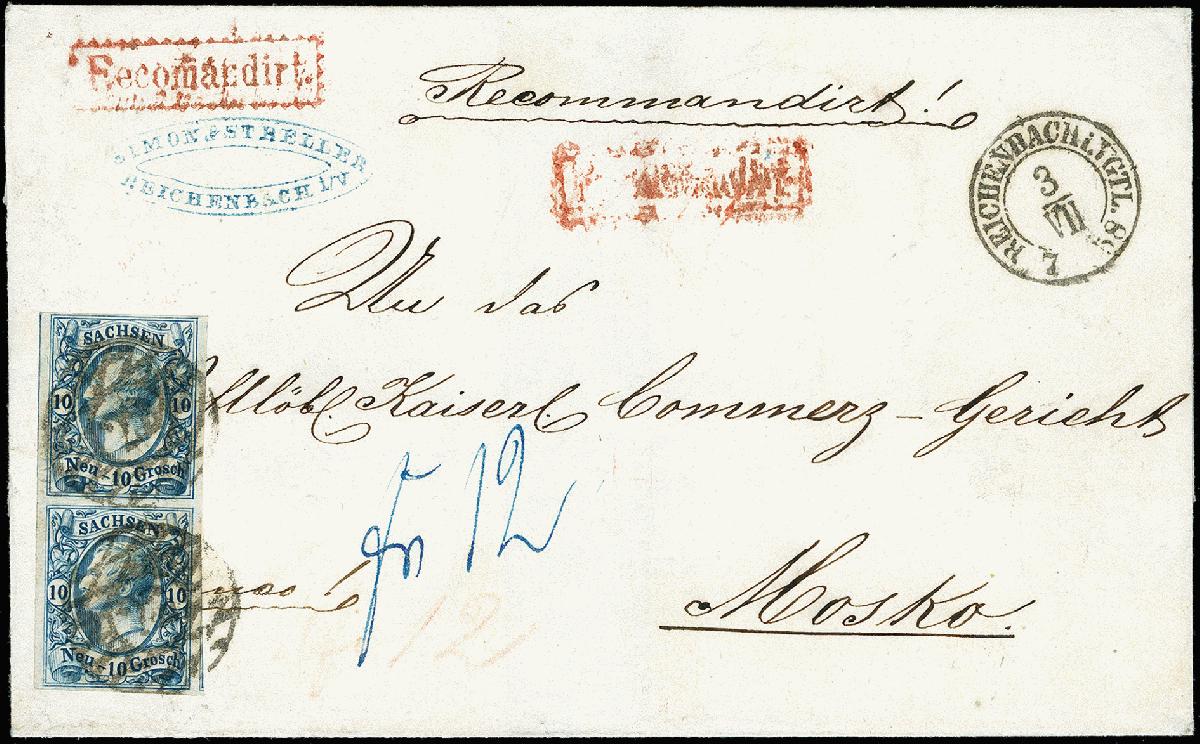 Recomandirt.
Recommandirt!
SIMON & STRELLER
REICHENBACH i/V
REICHENBACH i. VGTL. 
3/VII
7
An das
Kaiserl. Commerz-Gericht
Mosko.
fr 12
fr 12
SACHSEN
10 10
Neu-10 Grosch
SACHSEN
10 10
Neu-10 Grosch